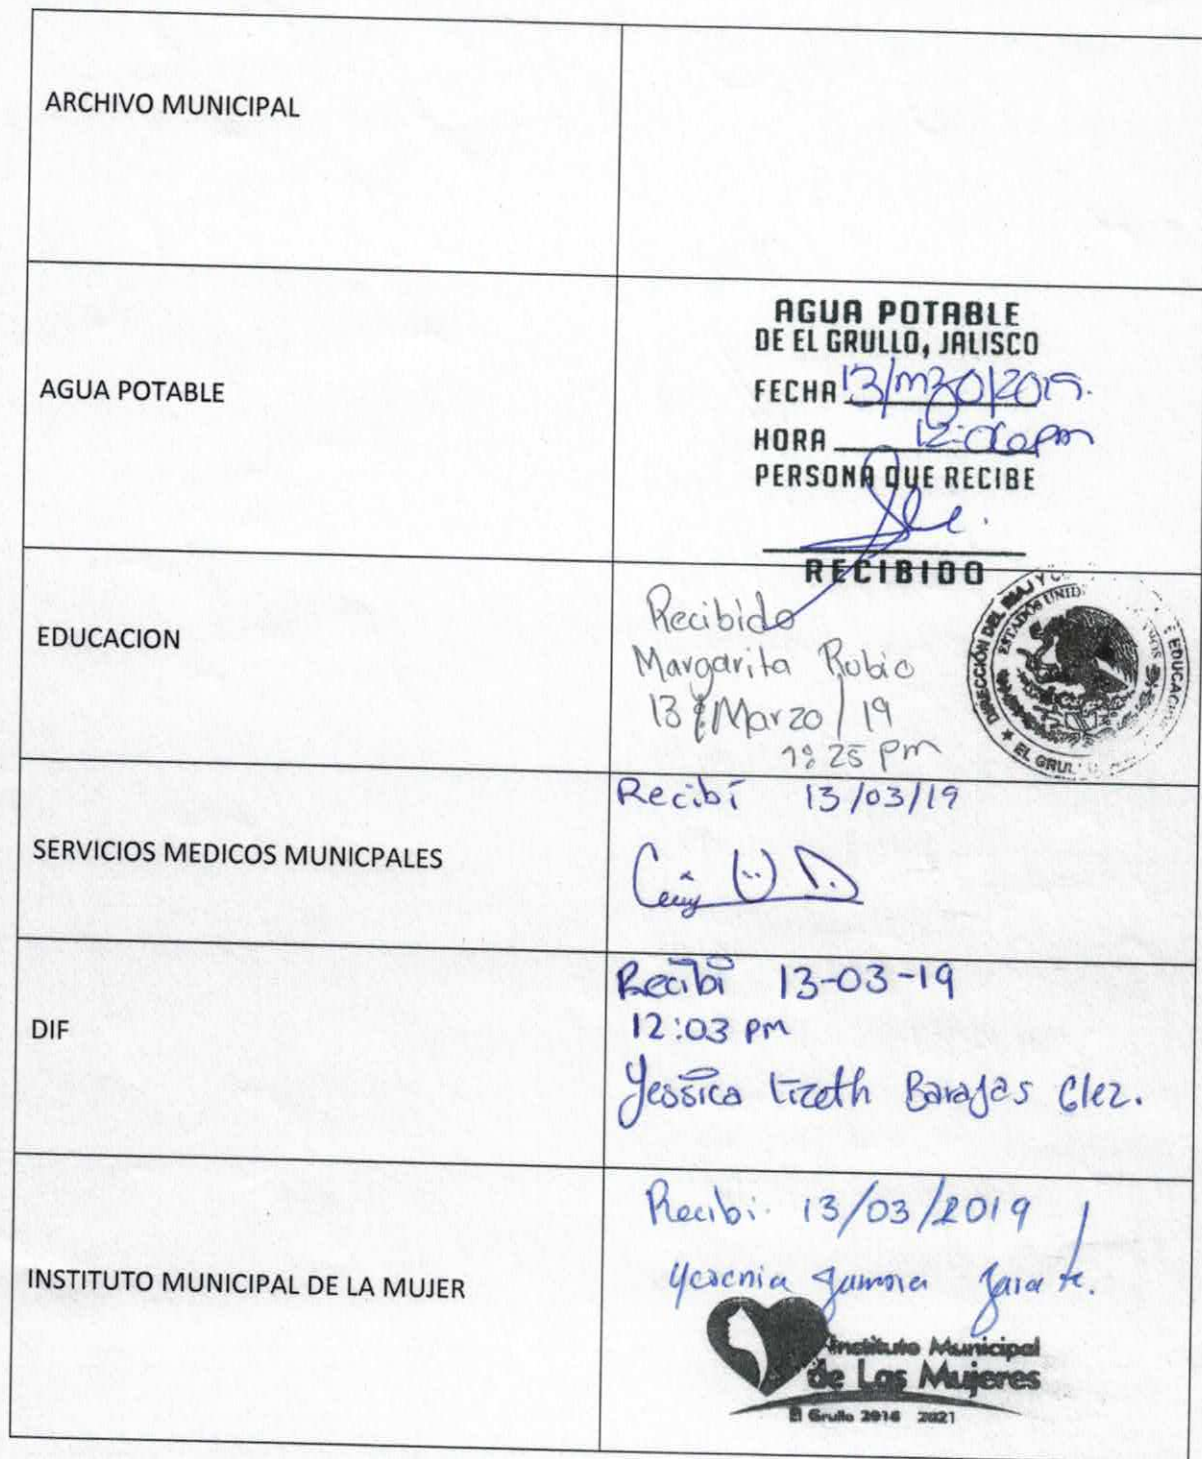 ARCHIVO MUNICIPAL
AGUA POTABLE
AGUA POTABLE
DE EL GRULLO, JALISCO
FECHA 13/mzo/2019.
HORA 12:06pm
PERSONA QUE RECIBE
RECIBIDO
EDUCACION
Recibido
Margarita Rubio
13/Marzo/19
1:25 pm
DIRECCIÓN DEL EDUCAC
ESTADOS UNID
EL GRUL
SERVICIOS MEDICOS MUNICPALES
Recibí 13/03/19
DIF
Recibí 13-03-19
12:03 pm
Yessica Lizeth Barajas Glez.
INSTITUTO MUNICIPAL DE LA MUJER
Recibi. 13/03/2019
Yesenia Zamora Zarate.
Instituto Municipal
de Las Mujeres
El Grullo 2018 2021